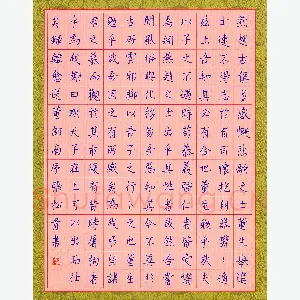 燕趙古稱多感慨悲歌之士董生舉進
士連不得志於有司懷抱利器鬱鬱適
茲土吾知其必有合也董生勉乎哉夫
以子之不遇時苟慕義彊仁者皆愛惜
焉矧燕趙之士出乎其性者哉然吾嘗
聞風俗與化移易吾惡知其今不異於
古所云邪聊以吾子之行卜之也董生
勉乎哉吾因子有所感矣為我弔望諸
君之墓而觀於其市復有昔時屠狗者
乎為我謝曰明天子在上可以出而仕
矣錄韓愈送董邵南序